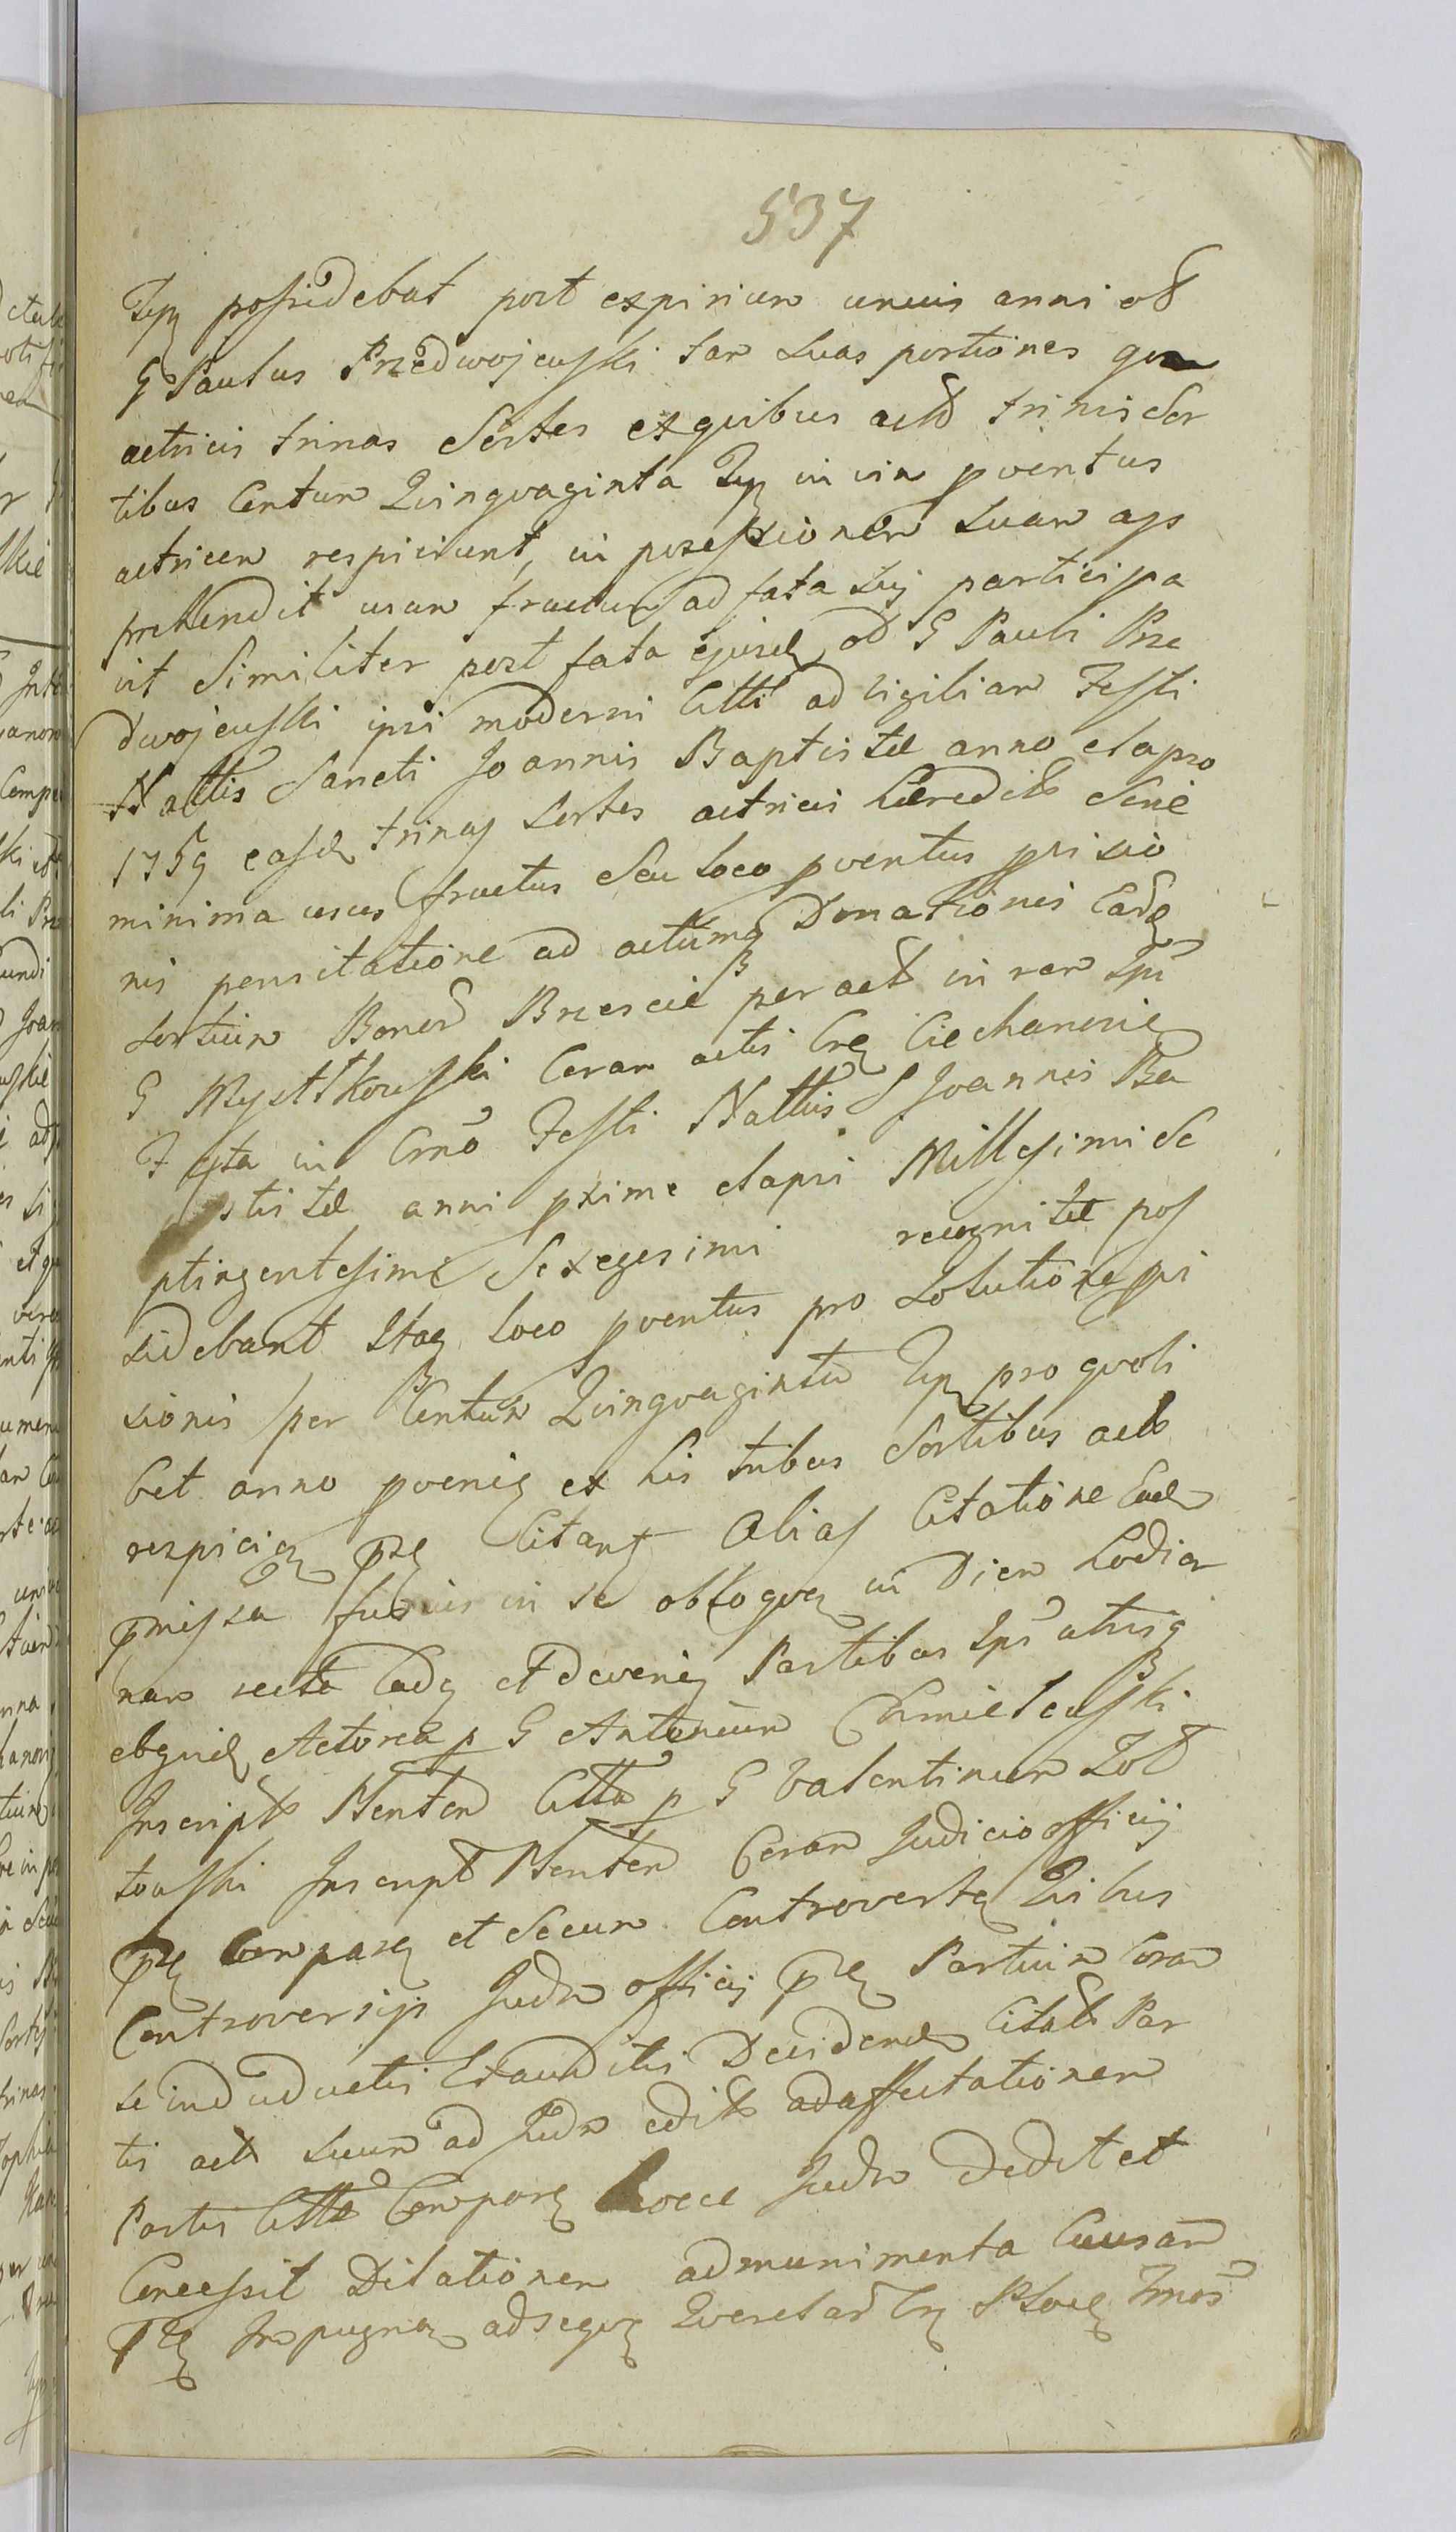 537
possidebat post expirium unius anni ol
G Paulus Przedwojewski tam suas portiones quam
actricis trinas Sortes ex quibus act trinis Sor
tibus Centum Quinquaginta in vim pventus
actricem respiciunt, in posessionem suam ap
prehendit usum fructum ad fata sui participa
vit Similiter post fata ejusd ol G Pauli Prze
dwojewski ipsi moderni Citti ad vigiliam Festi
Nattis Sancti Joannis Baptistæ anno elapso
1759 easd trinas Sortes actricis hæredit Sine
minima usus fructus Seu loco pventus pvisio
nis pensitatione ad actumq Donationis Eard
Sortium Bonor Brzescie peract in rem Ipsi
G Mystkowski Coram actis Cre Ciechanov
F in Crno Festi Nattis S Joannis Ba
ptistæ anni pxime elapsi Millesimi Se
ptingentesimi Sexegesimi recognitæ pos
sidebant Itaq loco pventus pro Solutione pvi
sionis per Centum Quinquaginta pro quoli
bet anno pvenien ex his tribus Sortibus act
respicien Citant Alias Citatione Ead
pmissa fusius in se obloquen in Diem hodier
nam recte Caden et devenien Partibus Ipsis utrisq
Actorea p G Antonium Chmielewski
Inscript Plenten Citta p G Valentinum Zol
towski Inscript Plenten Coram Judicio officij
Comparen et Secum Controverten Quibus
Controversijs Judm officij Partium Coram
se indeductis Exauditis Decidend Citat Par
tis act suum ad Judm edit ad affectationem
Partis Cittæ Comparen hocce Judm Dedit et
Concessit Dilationem ad munimenta Causam
Impugnan adsequen Ploc